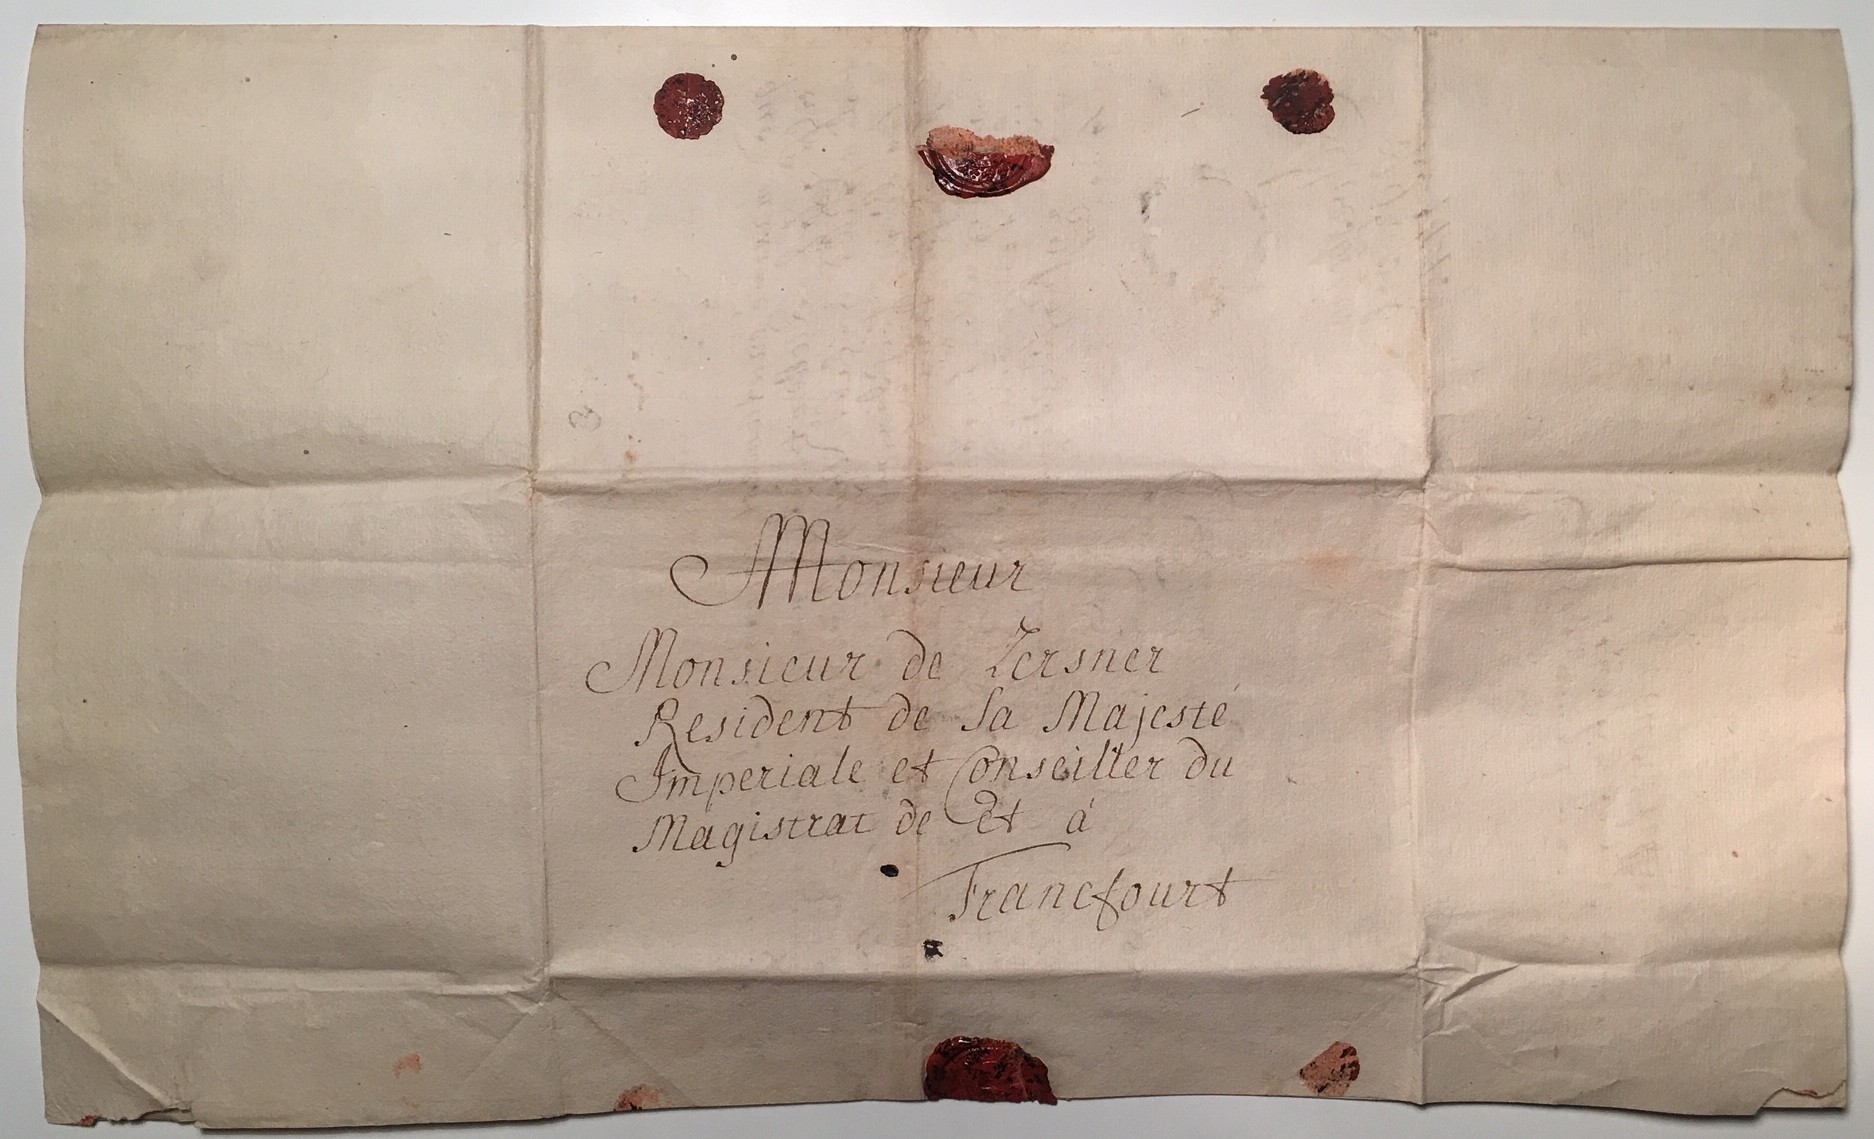 Monsieur
Monsieur de Zersner
Resident de Sa Majesté
Imperiale et Conseiller du
Magistrat de et á
Francfourt